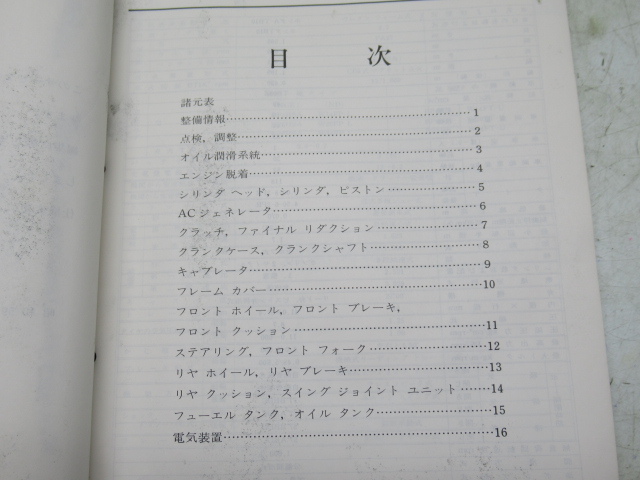 目 次
諸元表
整備情報……………………………………………1
点検，調整…………………………………………2
オイル潤滑系統……………………………………3
エンジン脱着………………………………………4
シリンダ ヘッド，シリンダ，ピストン…………………5
ACジェネレータ……………………………………6
クラッチ，ファイナル リダクション…………………7
クランクケース，クランクシャフト…………………8
キャブレータ………………………………………9
フレーム カバー……………………………………10
フロント ホイール，フロント ブレーキ，
フロント クッション…………………………………11
ステアリング，フロント フォーク……………………12
リヤ ホイール，リヤ ブレーキ………………………13
リヤ クッション，スイング ジョイント ユニット………14
フューエル タンク，オイル タンク……………………15
電気装置……………………………………………16